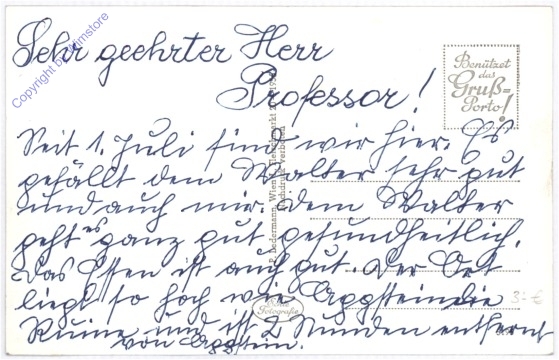 Sehr geehrter Herr
Professor!
Seit 1. Juli sind wir hier. Es
gefällt dem Walter sehr gut
und auch mir. Dem Walter
geht es ganz gut gesundheitlich.
Das Essen ist auch gut. Der Ort
liegt so hoch wie Aggstein die
Ruine und ist 2 Stunden entfernt
von Aggstein.
Benützet
das
Gruß=
Porto!
P. Ledermann, Wien
Nachdruck verboten
Echte
Fotografie
3.- €
Copyright by